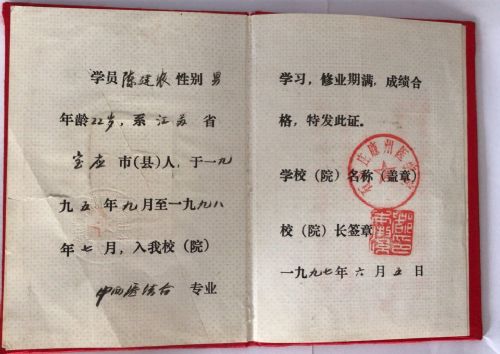 学员陈建农性别男
年龄22岁，系江苏省
宝应市(县)人，于一九
九五年九月至一九九八
年七月，入我校（院）
中西医结合专业
学习，修业期满，成绩合
格，特发此证。
学校（院）名称（盖章）
校（院）长签章
一九九七年六月五日